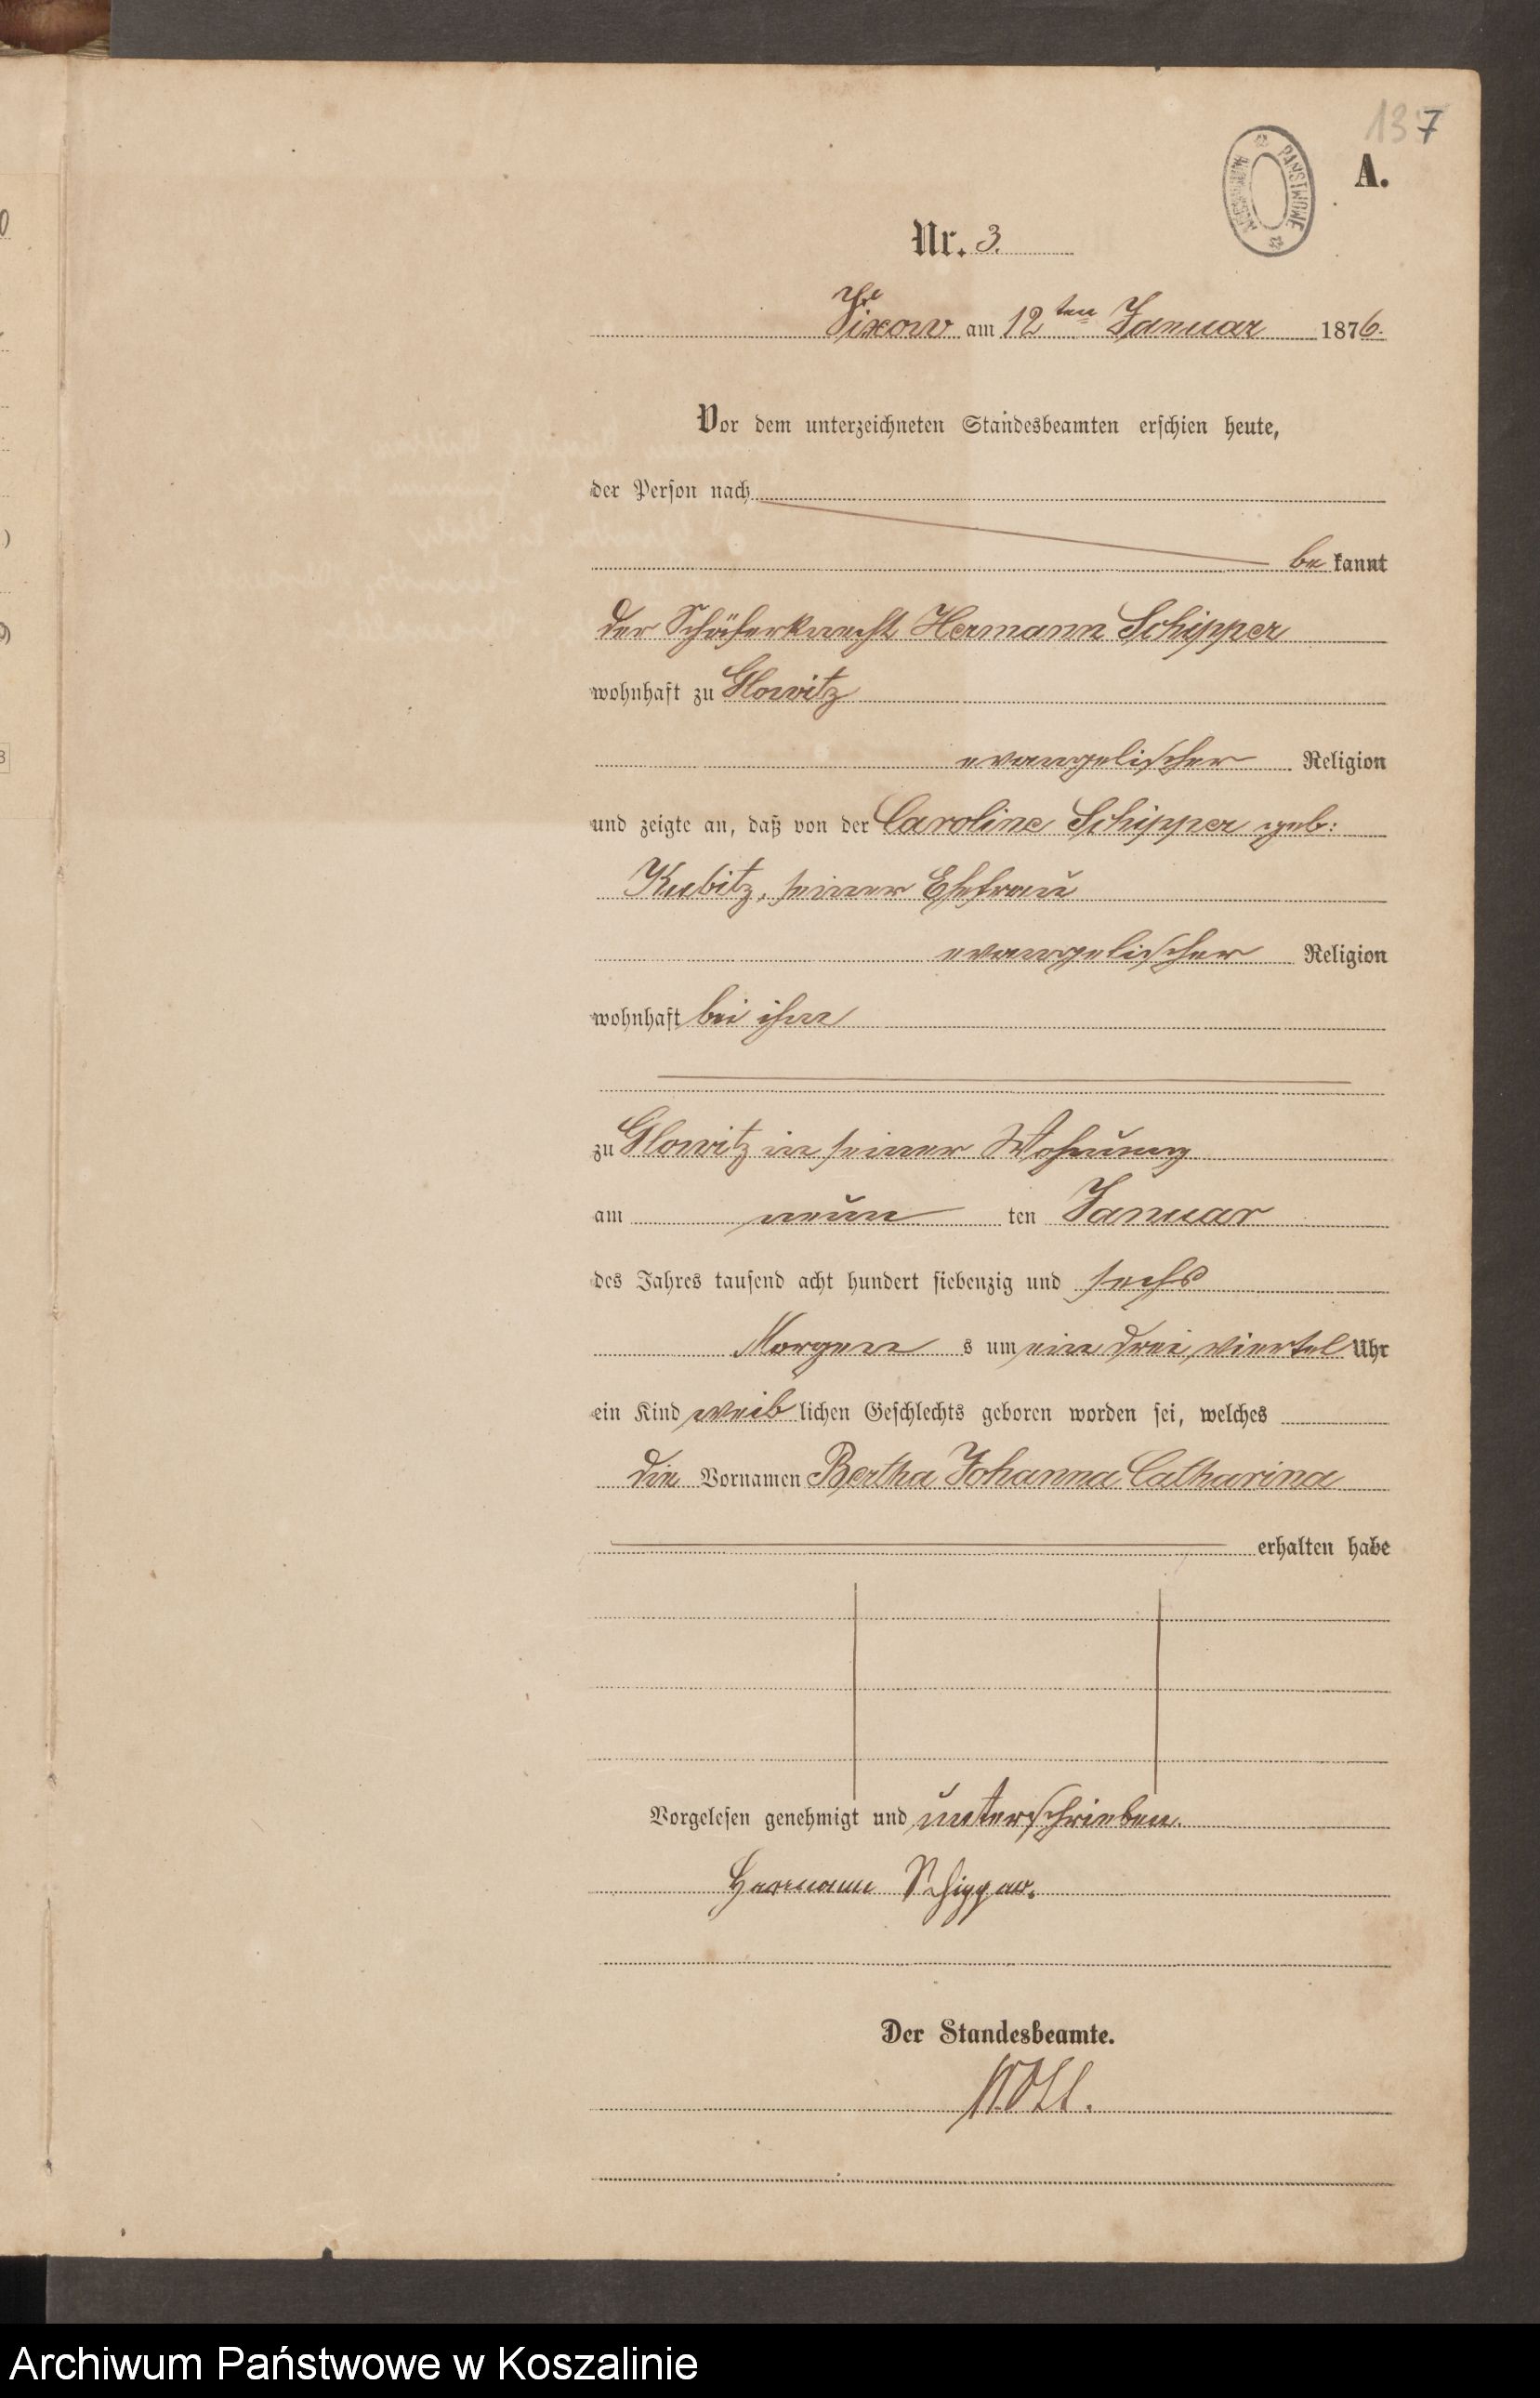 137
A.
ARCHIWUM PAŃSTWOWE
Nr. 3.
Vixow am 12ten Januar 1876.
Vor dem unterzeichneten Standesbeamten erschien heute,
der Person nach
be kannt
der Schäferknecht Hermann Schipper
wohnhaft zu Glowitz
evangelischer Religion
und zeigte an, daß von der Caroline Schipper geb:
Kubitz, seiner Ehefrau
evangelischer Religion
wohnhaft bei ihm
zu Glowitz in seiner Wohnung
am neun ten Januar
des Jahres tausend acht hundert siebenzig und sechs
Morgen s um ein drei viertel Uhr
ein Kind weib lichen Geschlechts geboren worden sei, welches
die Vornamen Bertha Johanna Catharina
erhalten habe
Vorgelesen genehmigt und unterschrieben.
Hermann Schipper.
Der Standesbeamte.
Archiwum Państwowe w Koszalinie